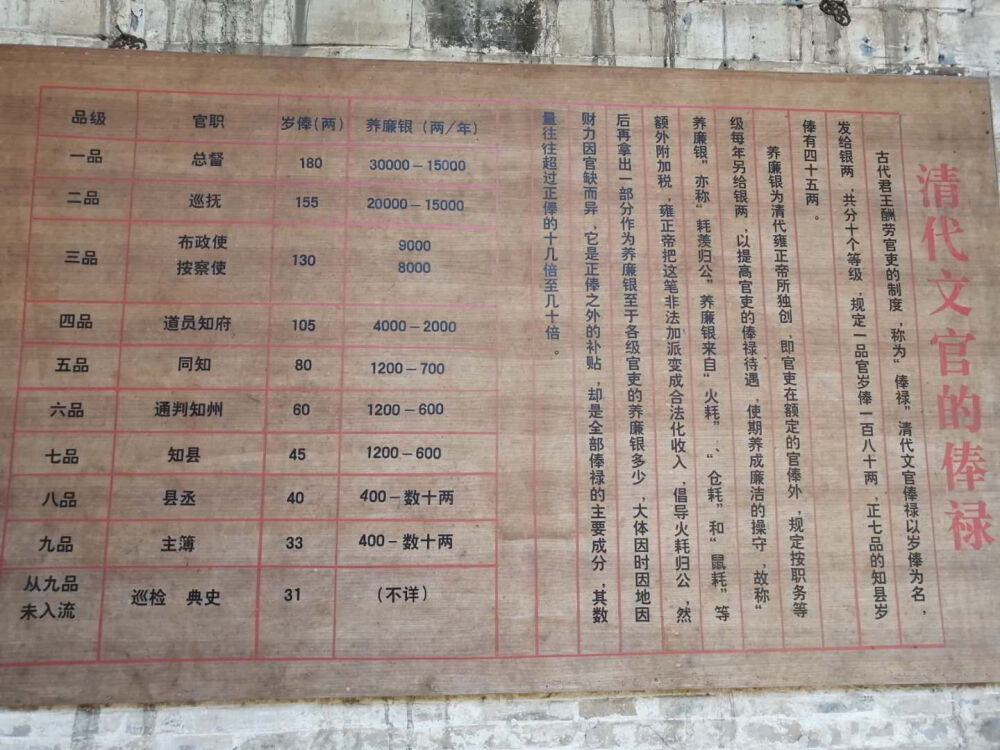 清代文官的俸禄
古代君王酬劳官吏的制度，称为“俸禄”清代文官俸禄以岁俸为名，
发给银两，共分十个等级，规定一品官岁俸一百八十两，正七品的知县岁
俸有四十五两。
养廉银为清代雍正帝所独创，即官吏在额定的官俸外，规定按职务等
级每年另给银两，以提高官吏的俸禄待遇，使期养成廉洁的操守，故称“
养廉银”亦称“耗羡归公”养廉银来自“火耗”、“仓耗”和“鼠耗”等
额外附加税，雍正帝把这笔非法加派变成合法化收入，倡导火耗归公，然
后再拿出一部分作为养廉银至于各级官吏的养廉银多少，大体因时因地因
财力因官缺而异，它是正俸之外的补贴，却是全部俸禄的主要成分，其数
量往往超过正俸的十几倍至几十倍。
品级 官职 岁俸(两) 养廉银（两/年）
一品 总督 180 30000－15000
二品 巡抚 155 20000－15000
三品 布政使 按察使 130 9000 8000
四品 道员知府 105 4000－2000
五品 同知 80 1200－700
六品 通判知州 60 1200－600
七品 知县 45 1200－600
八品 县丞 40 400－数十两
九品 主簿 33 400－数十两
从九品 未入流 巡检 典史 31 （不详）